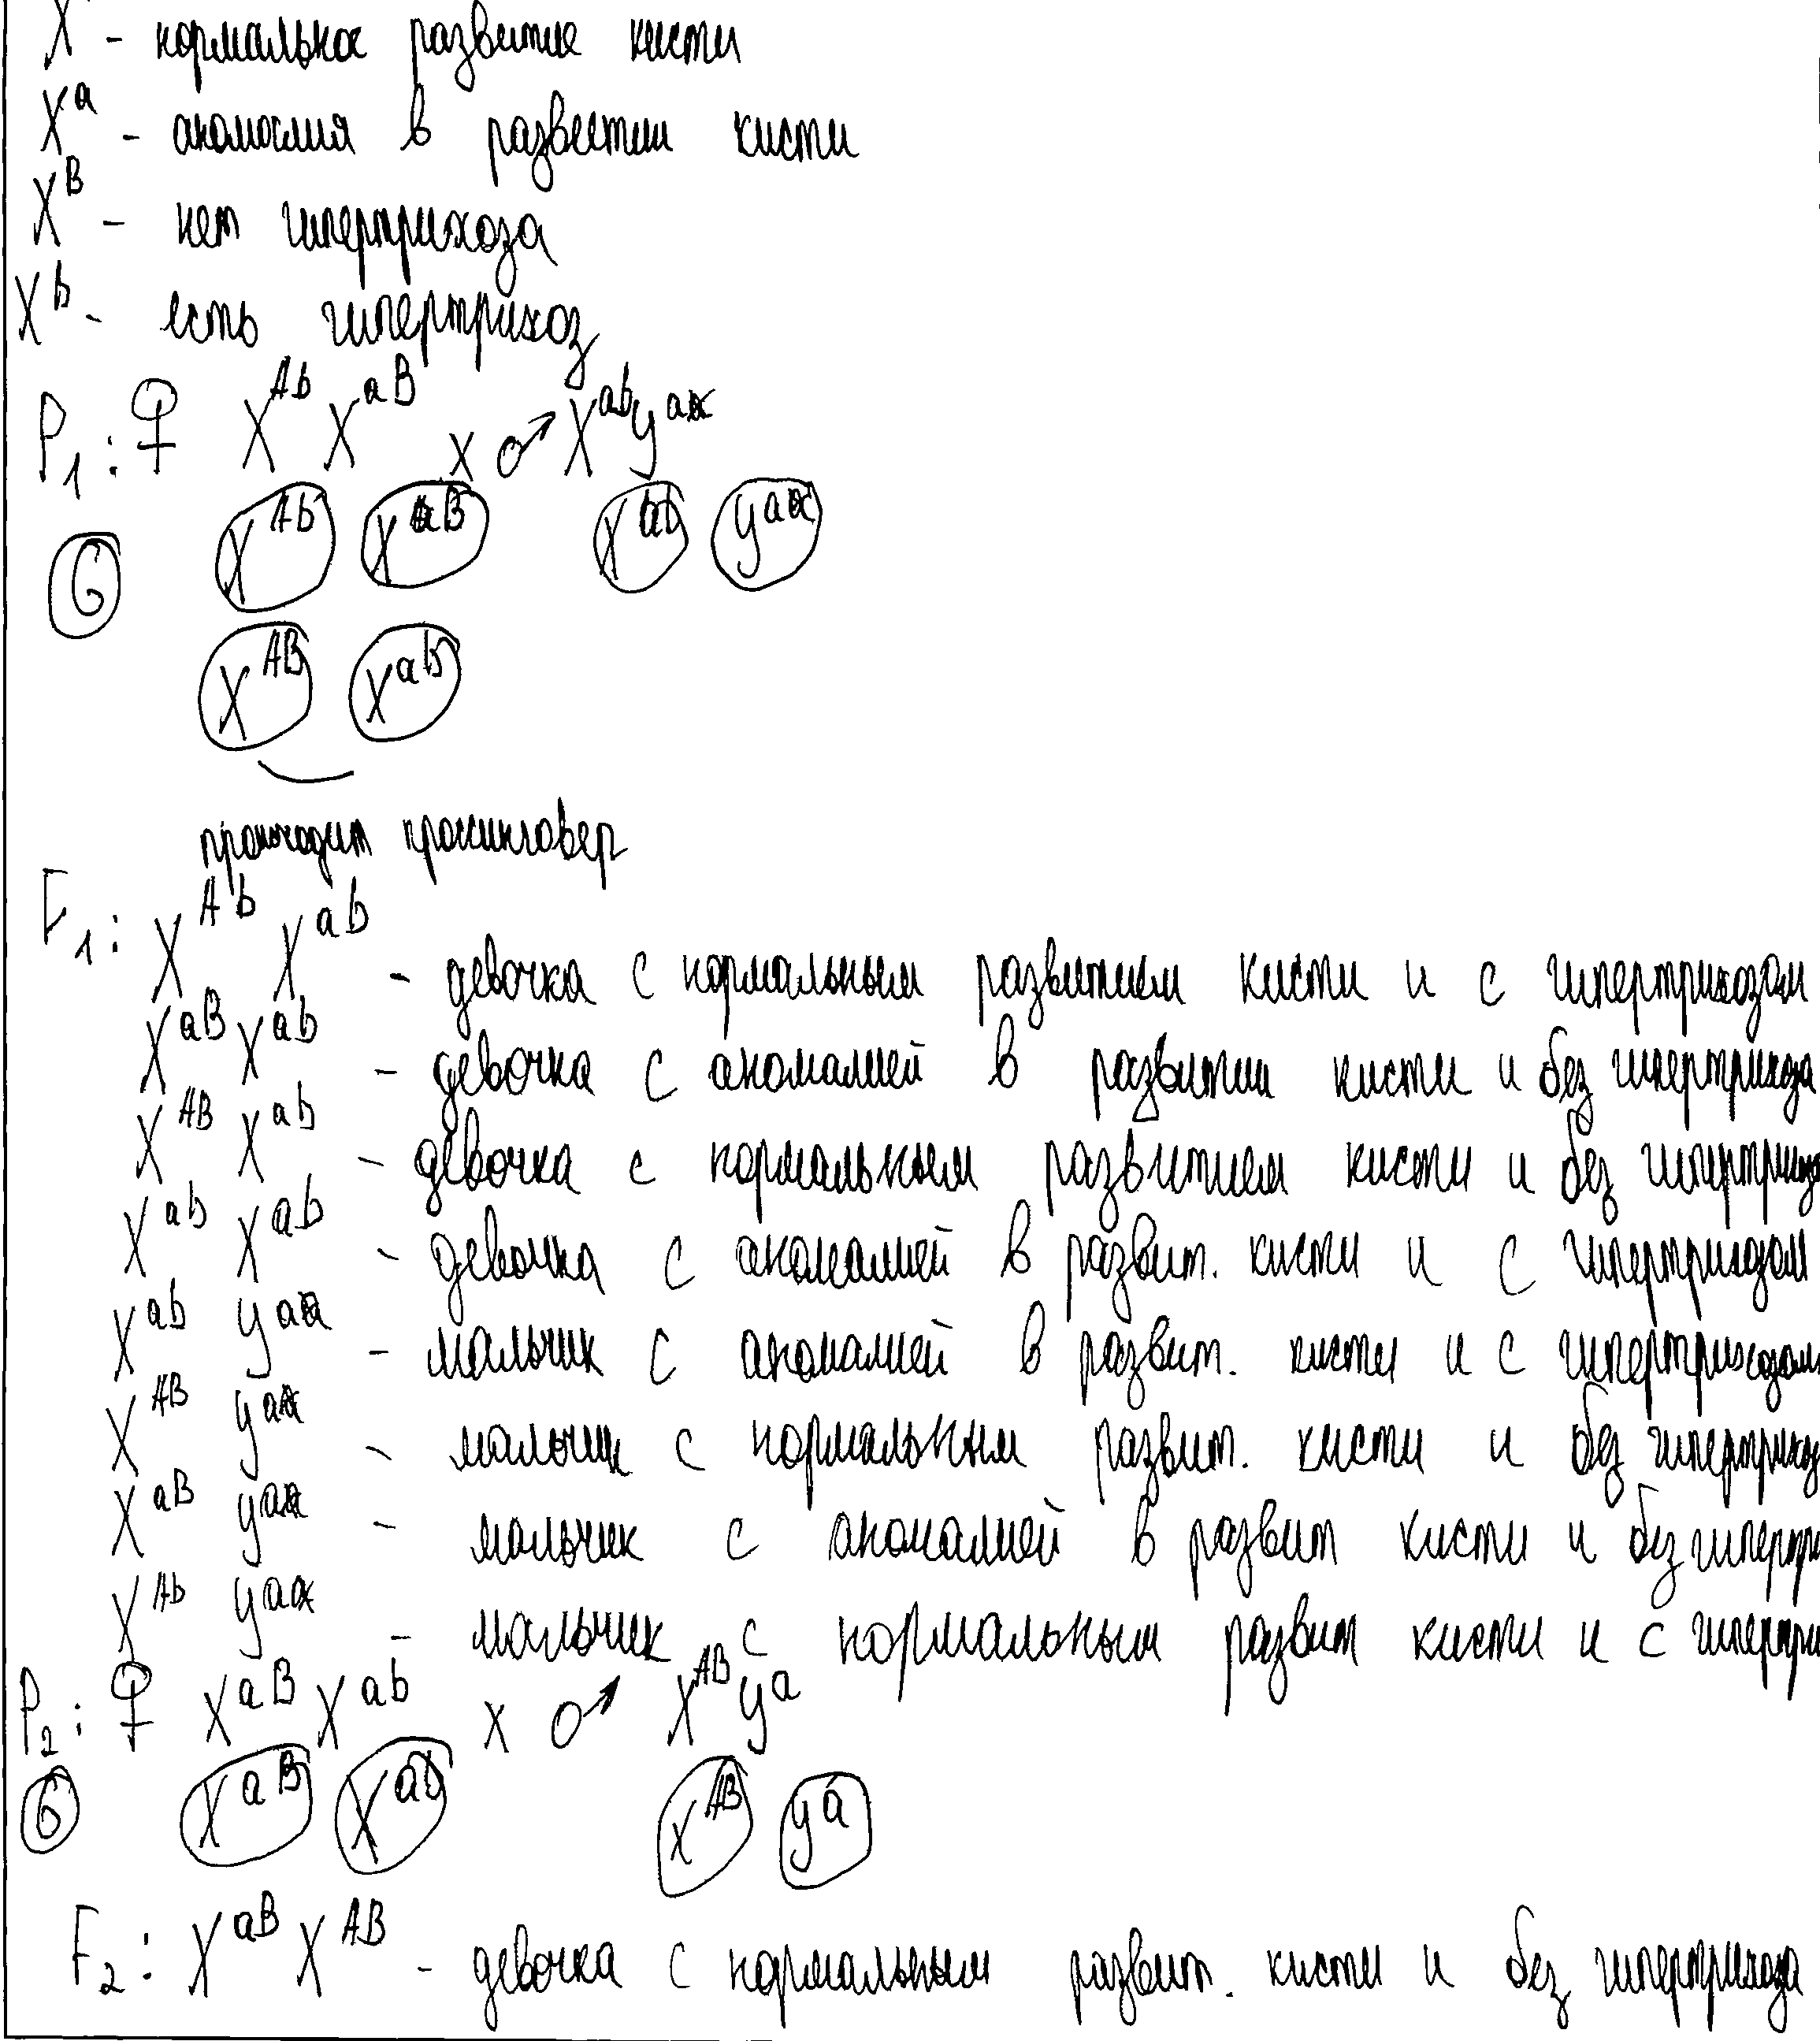 X - нормальное развитие кисти
Xᵃ - аномалия в развитии кисти
Xᴮ - нет гипертрихоза
Xᵇ - есть гипертрихоз
P₁: ♀ Xᴬᵇ Xᵃᴮ x ♂ Xᵃᵇ yᵃ
G Xᴬᵇ Xᵃᴮ Xᵃᵇ yᵃ
Xᴬᴮ Xᵃᵇ
кроссинговер
F₁: Xᴬᵇ Xᵃᵇ - девочка с нормальным развитием кисти и с гипертрихозом
Xᵃᴮ Xᵃᵇ - девочка с аномалией в развитии кисти и без гипертрихоза
Xᴬᴮ Xᵃᵇ - девочка с нормальным развитием кисти и без гипертрихоз
Xᵃᵇ Xᵃᵇ - девочка с аномалией в развит. кисти и с гипертрихозом
Xᵃᵇ yᵃ - мальчик с аномалией в развит. кисти и с гипертрихозом
Xᴬᴮ yᵃ - мальчик с нормальным развит. кисти и без гипертрихоз
Xᵃᴮ yᵃ - мальчик с аномалией в развит кисти и без гипертри
Xᴬᵇ yᵃ - мальчик с нормальным развит кисти и с гипертри
P₂: ♀ Xᵃᴮ Xᵃᵇ x ♂ Xᴬᴮ yᵃ
G Xᵃᴮ Xᵃᵇ Xᴬᴮ yᵃ
F₂: Xᵃᴮ Xᴬᴮ - девочка с нормальным развит. кисти и без гипертрихоза